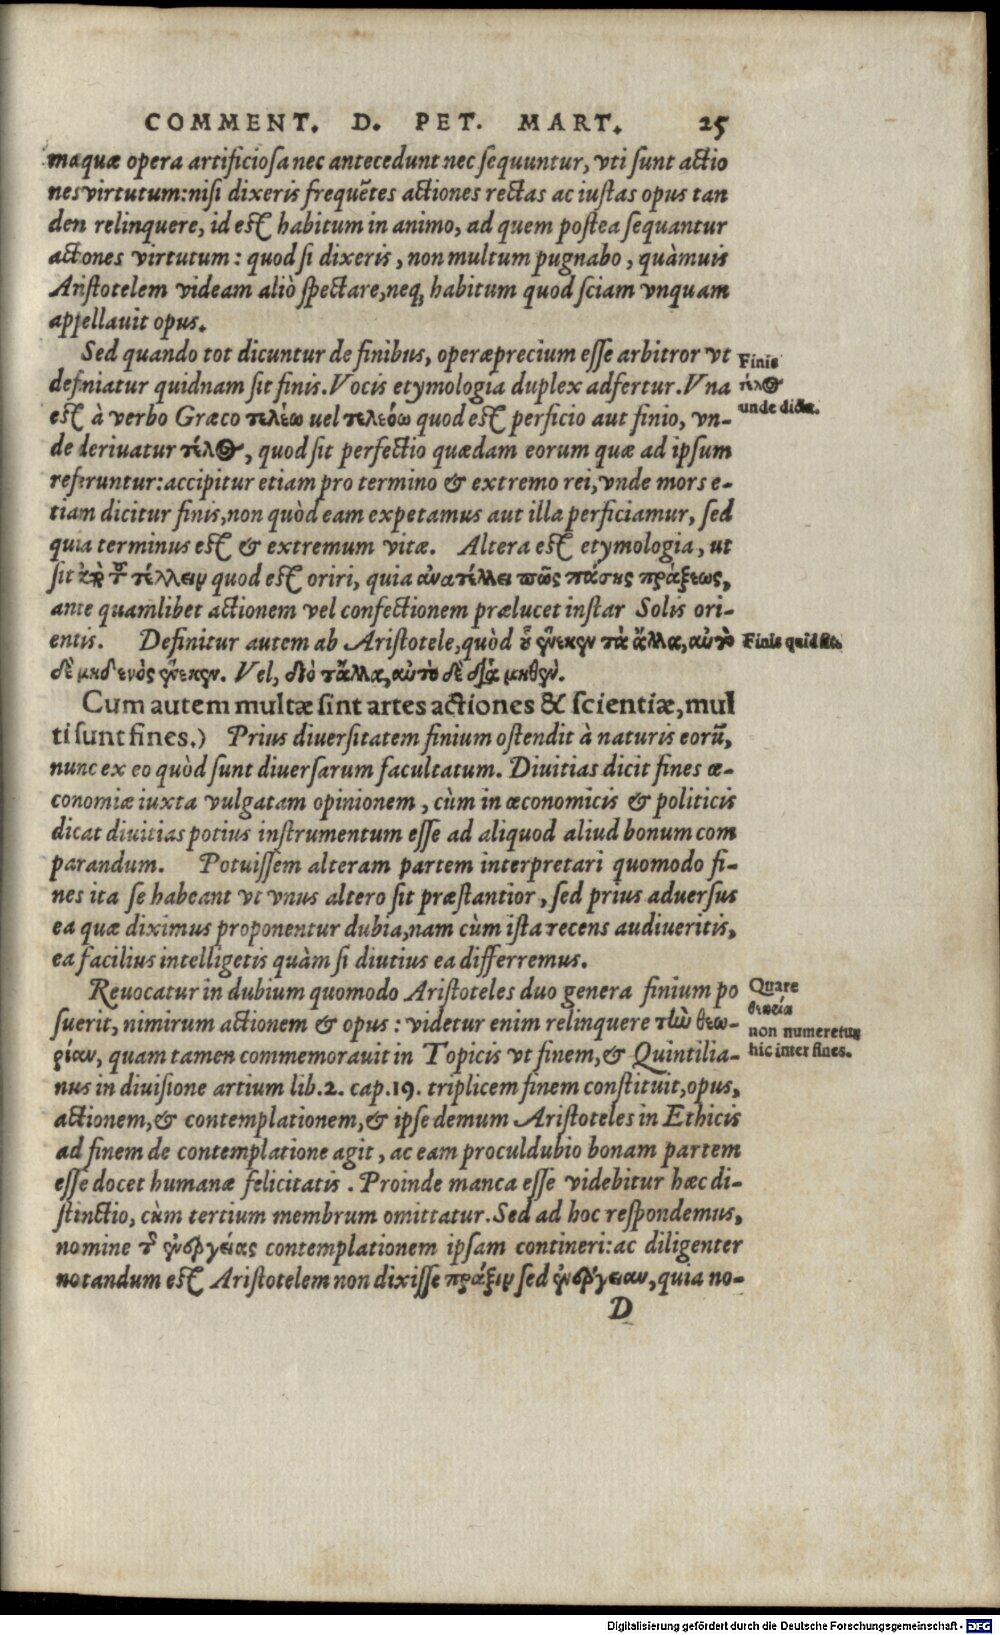 COMMENT. D. PET. MART. 25
maquæ opera artificiosa nec antecedunt nec sequuntur, vti sunt actio
nes virtutum: nisi dixeris frequẽtes actiones rectas ac iustas opus tan
den relinquere, id est habitum in animo, ad quem postea sequantur
actones virtutum: quod si dixeris, non multum pugnabo, quàmuis
Aristotelem videam aliò spectare, neq; habitum quod sciam vnquam
appellauit opus.
Sed quando tot dicuntur de finibus, operæprecium esse arbitror vt
definiatur quidnam sit finis. Vocis etymologia duplex adfertur. Vna
est à verbo Græco τελέω uel τελεόω quod est perficio aut finio, vn-
de deriuatur τέλος, quod sit perfectio quædam eorum quæ ad ipsum
referuntur: accipitur etiam pro termino & extremo rei, vnde mors e-
tiam dicitur finis, non quòd eam expetamus aut illa perficiamur, sed
quia terminus est & extremum vitæ. Altera est etymologia, ut
sit ἀπὸ τοῦ τέλλειν quod est oriri, quia ἀνατέλλει πρὸς πάσης πράξεως,
ante quamlibet actionem vel confectionem prælucet instar Solis ori-
entis. Definitur autem ab Aristotele, quòd οὗ ἕνεκεν τὰ ἄλλα, αὐτὸ
δὲ μηδενὸς ἕνεκεν. Vel, διὸ τἄλλα, αὐτὸ δὲ διὰ μηθέν.
Cum autem multæ sint artes actiones & scientiæ, mul
ti sunt fines.) Prius diuersitatem finium ostendit à naturis eorũ,
nunc ex eo quòd sunt diuersarum facultatum. Diuitias dicit fines œ-
conomiæ iuxta vulgatam opinionem, cùm in œconomicis & politicis
dicat diuitias potius instrumentum esse ad aliquod aliud bonum com
parandum. Potuissem alteram partem interpretari quomodo fi-
nes ita se habeant vt vnus altero sit præstantior, sed prius aduersus
ea quæ diximus proponentur dubia, nam cùm ista recens audiueritis,
ea facilius intelligetis quàm si diutius ea differremus.
Reuocatur in dubium quomodo Aristoteles duo genera finium po
suerit, nimirum actionem & opus: videtur enim relinquere τὴν θεω-
ρίαν, quam tamen commemorauit in Topicis vt finem, & Quintilia-
nus in diuisione artium lib. 2. cap. 19. triplicem finem constituit, opus,
actionem, & contemplationem, & ipse demum Aristoteles in Ethicis
ad finem de contemplatione agit, ac eam proculdubio bonam partem
esse docet humanæ felicitatis. Proinde manca esse videbitur hæc di-
stinctio, cùm tertium membrum omittatur. Sed ad hoc respondemus,
nomine τῆς ἐνεργείας contemplationem ipsam contineri: ac diligenter
notandum est Aristotelem non dixisse πρᾶξιν sed ἐνέργειαν, quia no-
D
Finis
τέλος
unde dictæ.
Finis quid sit.
Quare
θεωρία
non numeretur
hic inter fines.
Digitalisierung gefördert durch die Deutsche Forschungsgemeinschaft - DFG